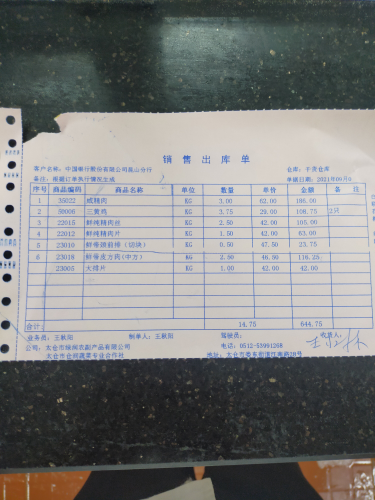 销售出库单
客户名称：中国银行股份有限公司昆山分行 仓库：干货仓库
备注：根据订单执行情况生成 单据日期：2021年09月
序号 商品编码 商品名称 单位 数量 单价 金额 备注
1 35022 咸精肉 KG 3.00 62.00 186.00
2 30006 三黄鸡 KG 3.75 29.00 108.75 2只
3 22015 鲜纯精肉丝 KG 2.50 42.00 105.00
4 22012 鲜纯精肉片 KG 1.50 42.00 63.00
5 23010 KG 0.50 47.50 23.75
6 23018 KG 2.50 46.50 116.25
23005 大排片 KG 1.00 42.00 42.00
合计： 14.75 644.75
业务员：王秋阳 制单人：王秋阳 驾驶员： 收货人：
公司：太仓市 农副产品有限公司 电话：0512-53991268
太仓市仓润蔬菜专业合作社 地址：太仓市娄东街道江南路28号